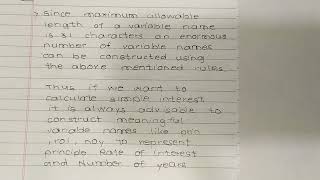 > Since maximum allowable
length of a variable name
is 31 characters an enormous
number of variable names
can be constructed using
the above mentioned rules.
Thus if we want to
calculate simple interest
it is always advisable to
construct meaningful
variable names like
, roi, noy to represent
principle Rate of interest
and Number of years